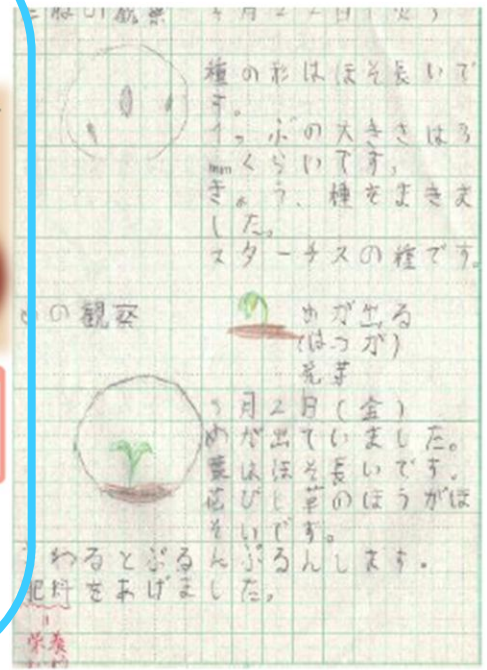 の観察 4月22日(火)
種の形はほそ長いで
す。
1つぶの大きさは3
mmくらいです。
きょう、種をまきま
した。
スターチスの種です。
めの観察
めが出る
(はつが)
発芽
5月2日(金)
めが出ていました。
葉はほそ長いです。
花びし草のほうがほ
そいです。
さわるとぷるんぷるんします。
肥料をあげました。
栄養